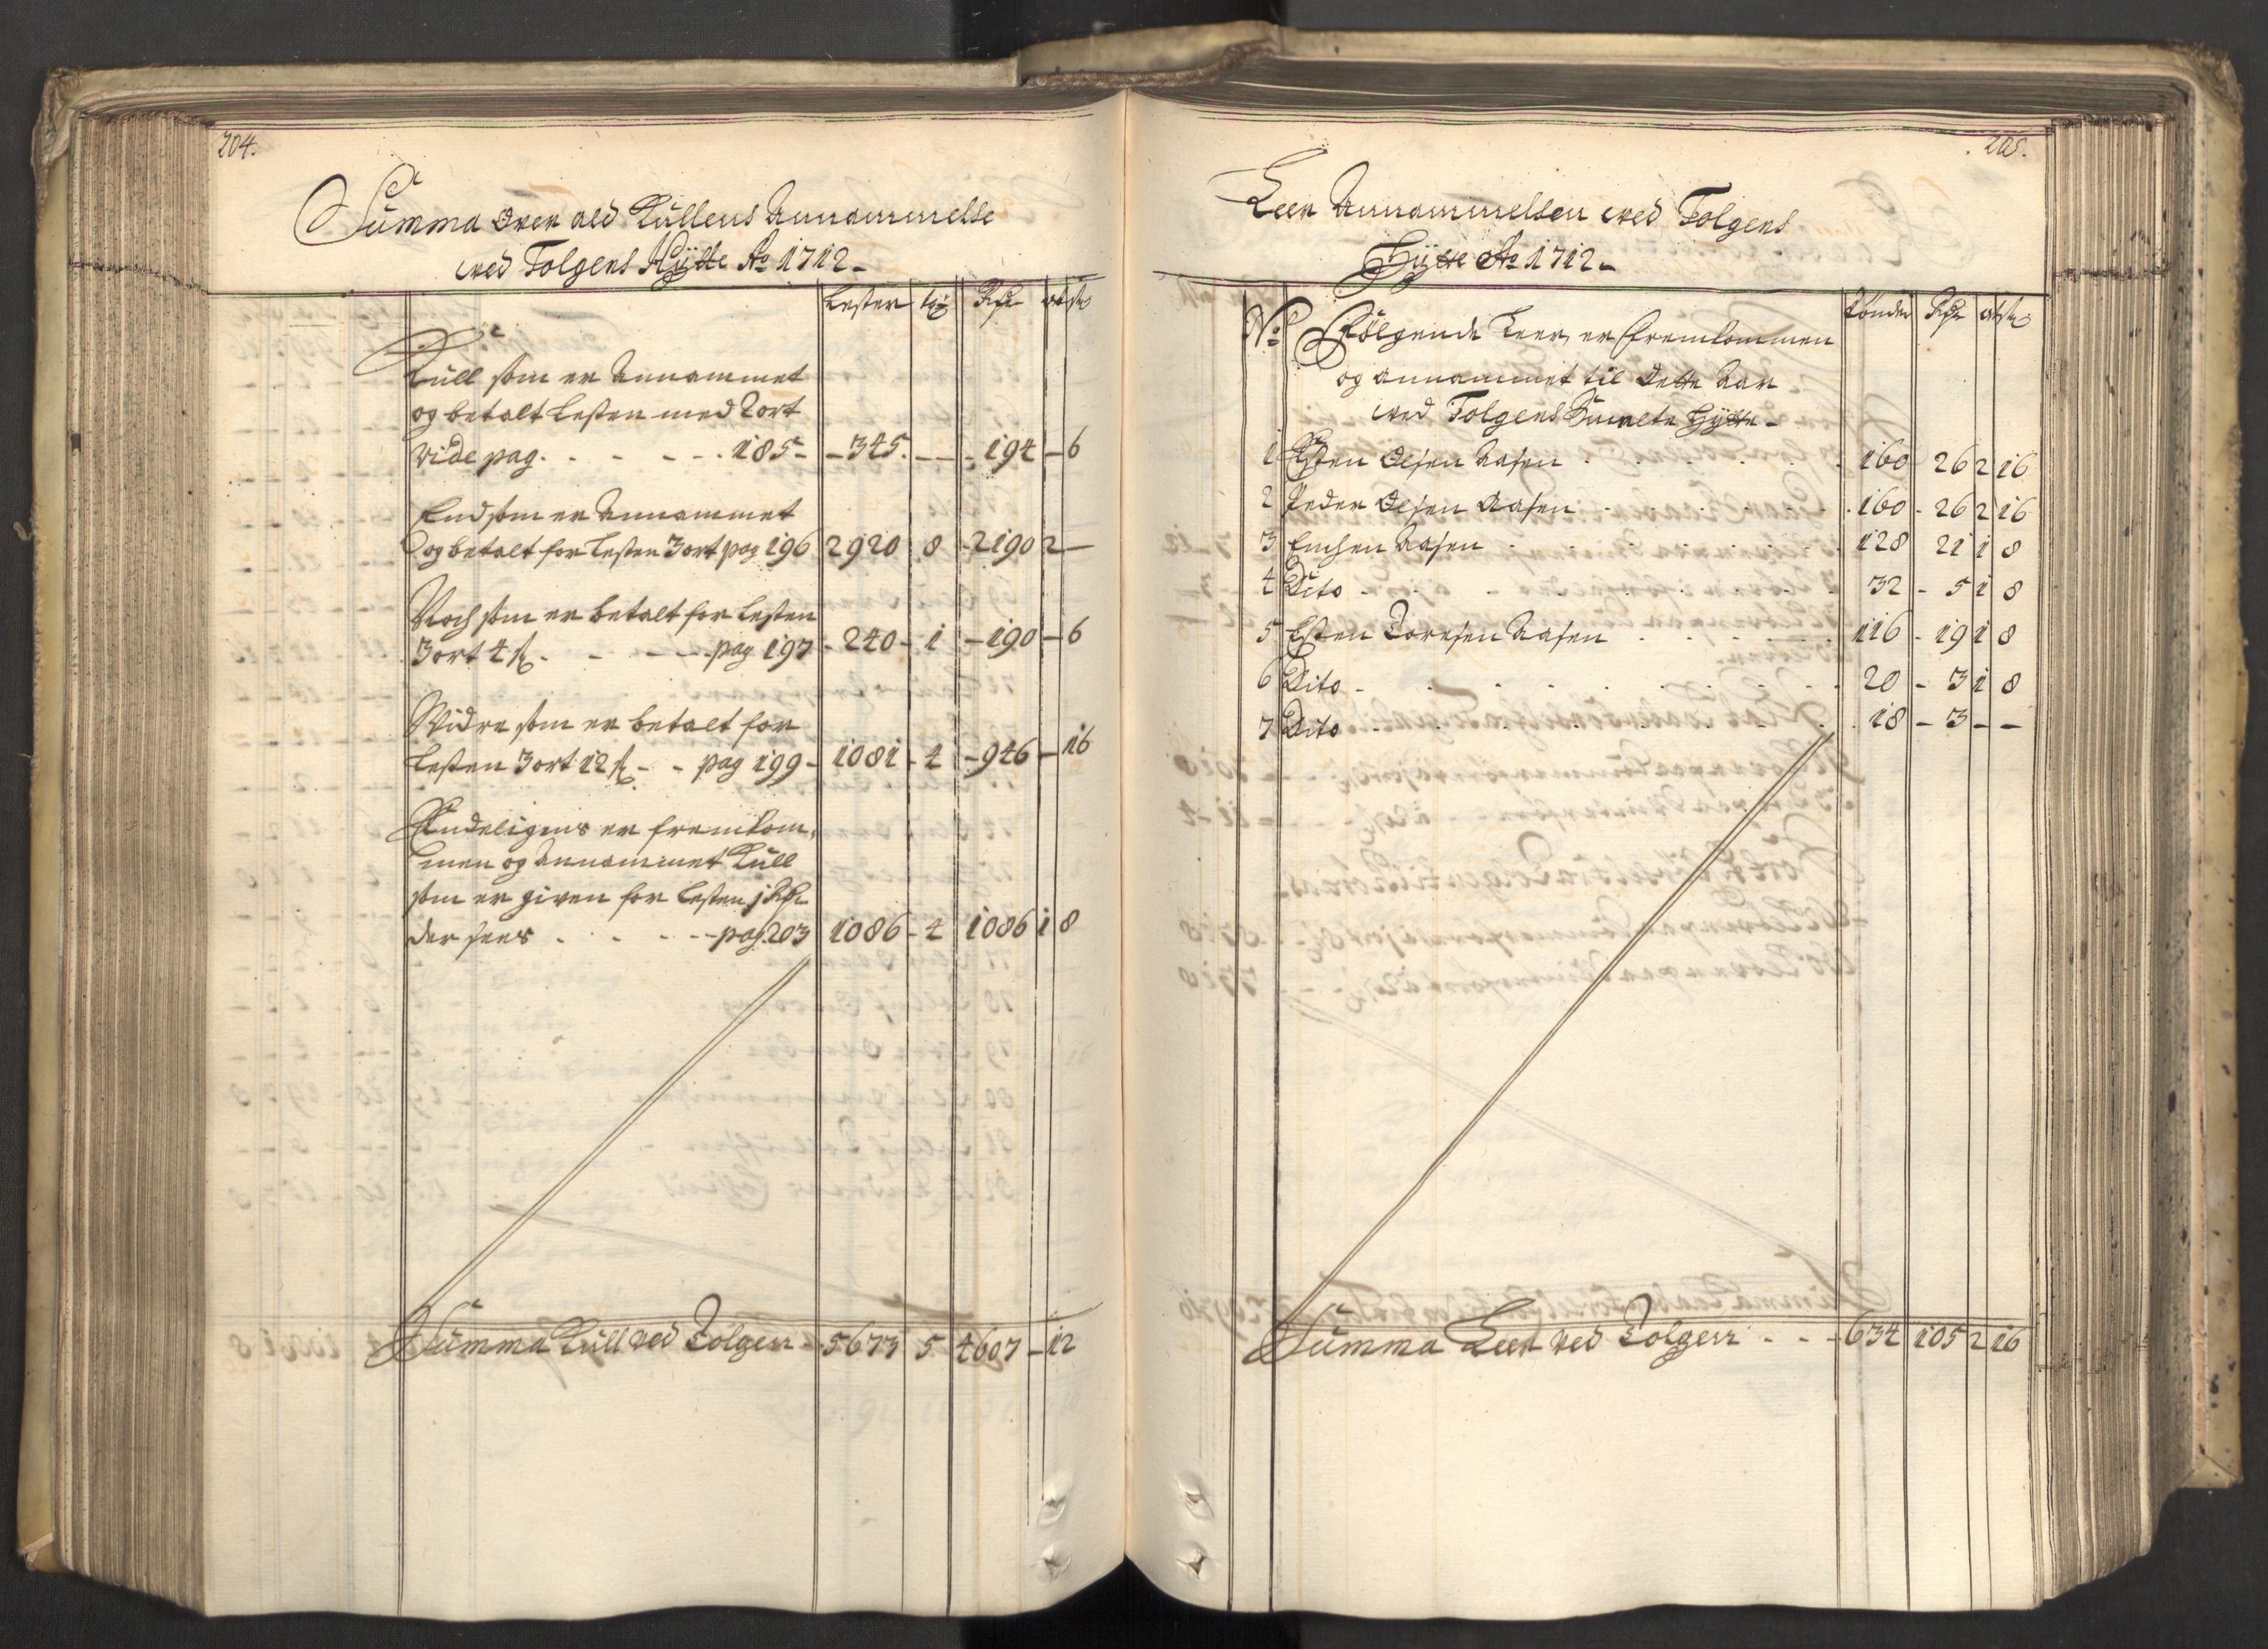 204.
Summa over ald Kullens Annammelse
ved Tolgens Hÿtte Ao 1712
Lester
Kull som er Annammet
og betalt Lesten med 2 ort
vide pag. 185 345 194 6
End som er Annammet
og betalt for Lesten 3 ort pag 196 2920 8 2190 2
Noch som er betalt for Lesten
3 ort 4 s pag 197 240 1 190 6
Widre som er betalt for
Lesten 3 ort 12 s pag 199 1081 4 946 16
Endeligens er fremkom-
men og Annammet Kull
som er given for Lesten 1 Rdr
der sees pag 203 1086 4 1086 1 8
Summa Kull ved Tolgen 5673 5 4607 12
205.
Leer Annammelsen ved Tolgens
Hÿtte Ao 1712
No Følgende Leer er fremkommen
og annammet til dette Aar
ved Tolgens Smelte Hÿtte
Tønder
1 Esten Olsen Aasen 160 26 2 16
2 Peder Olsen Aasen 160 26 2 16
3 Aasen 128 21 1 8
4 Dito 32 5 1 8
5 Esten Toresen Aasen 116 19 1 8
6 Dito 20 3 1 8
7 Dito 18 3
Summa Leer ved Tolgen 634 105 2 16